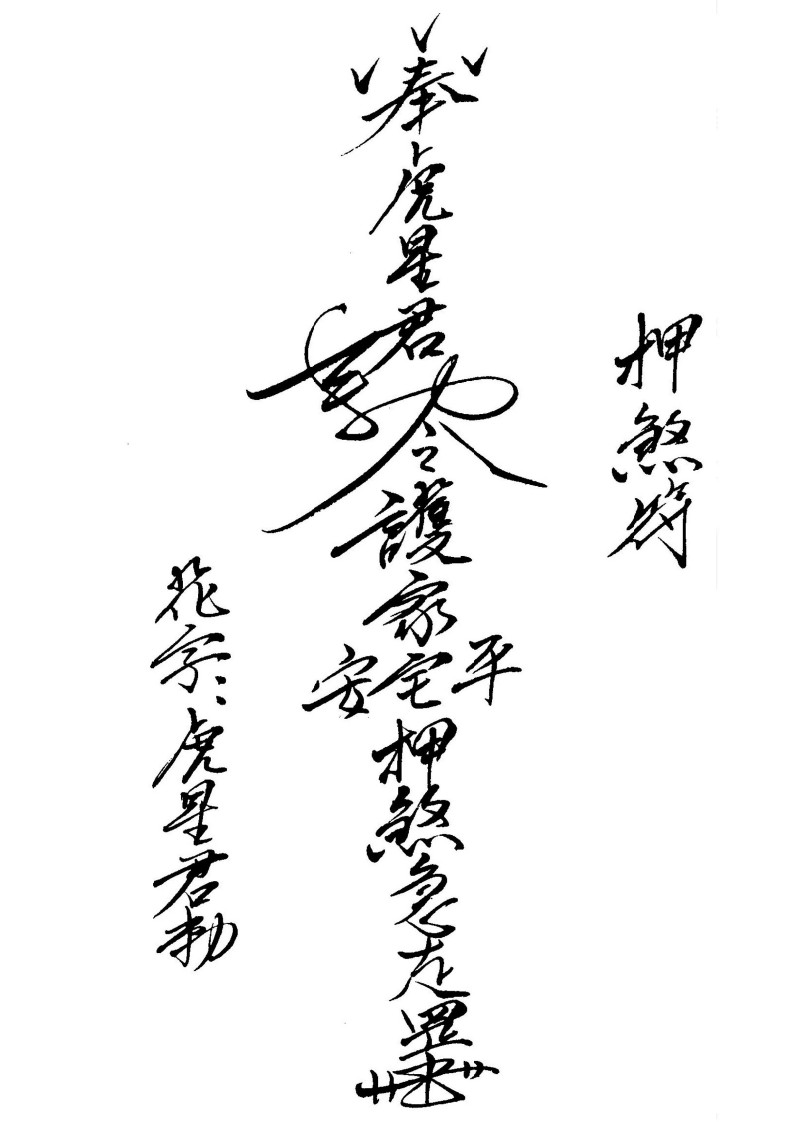 押煞符
奉虎星君
敕令護家宅押煞急走罡
平安
花字：虎星君勅